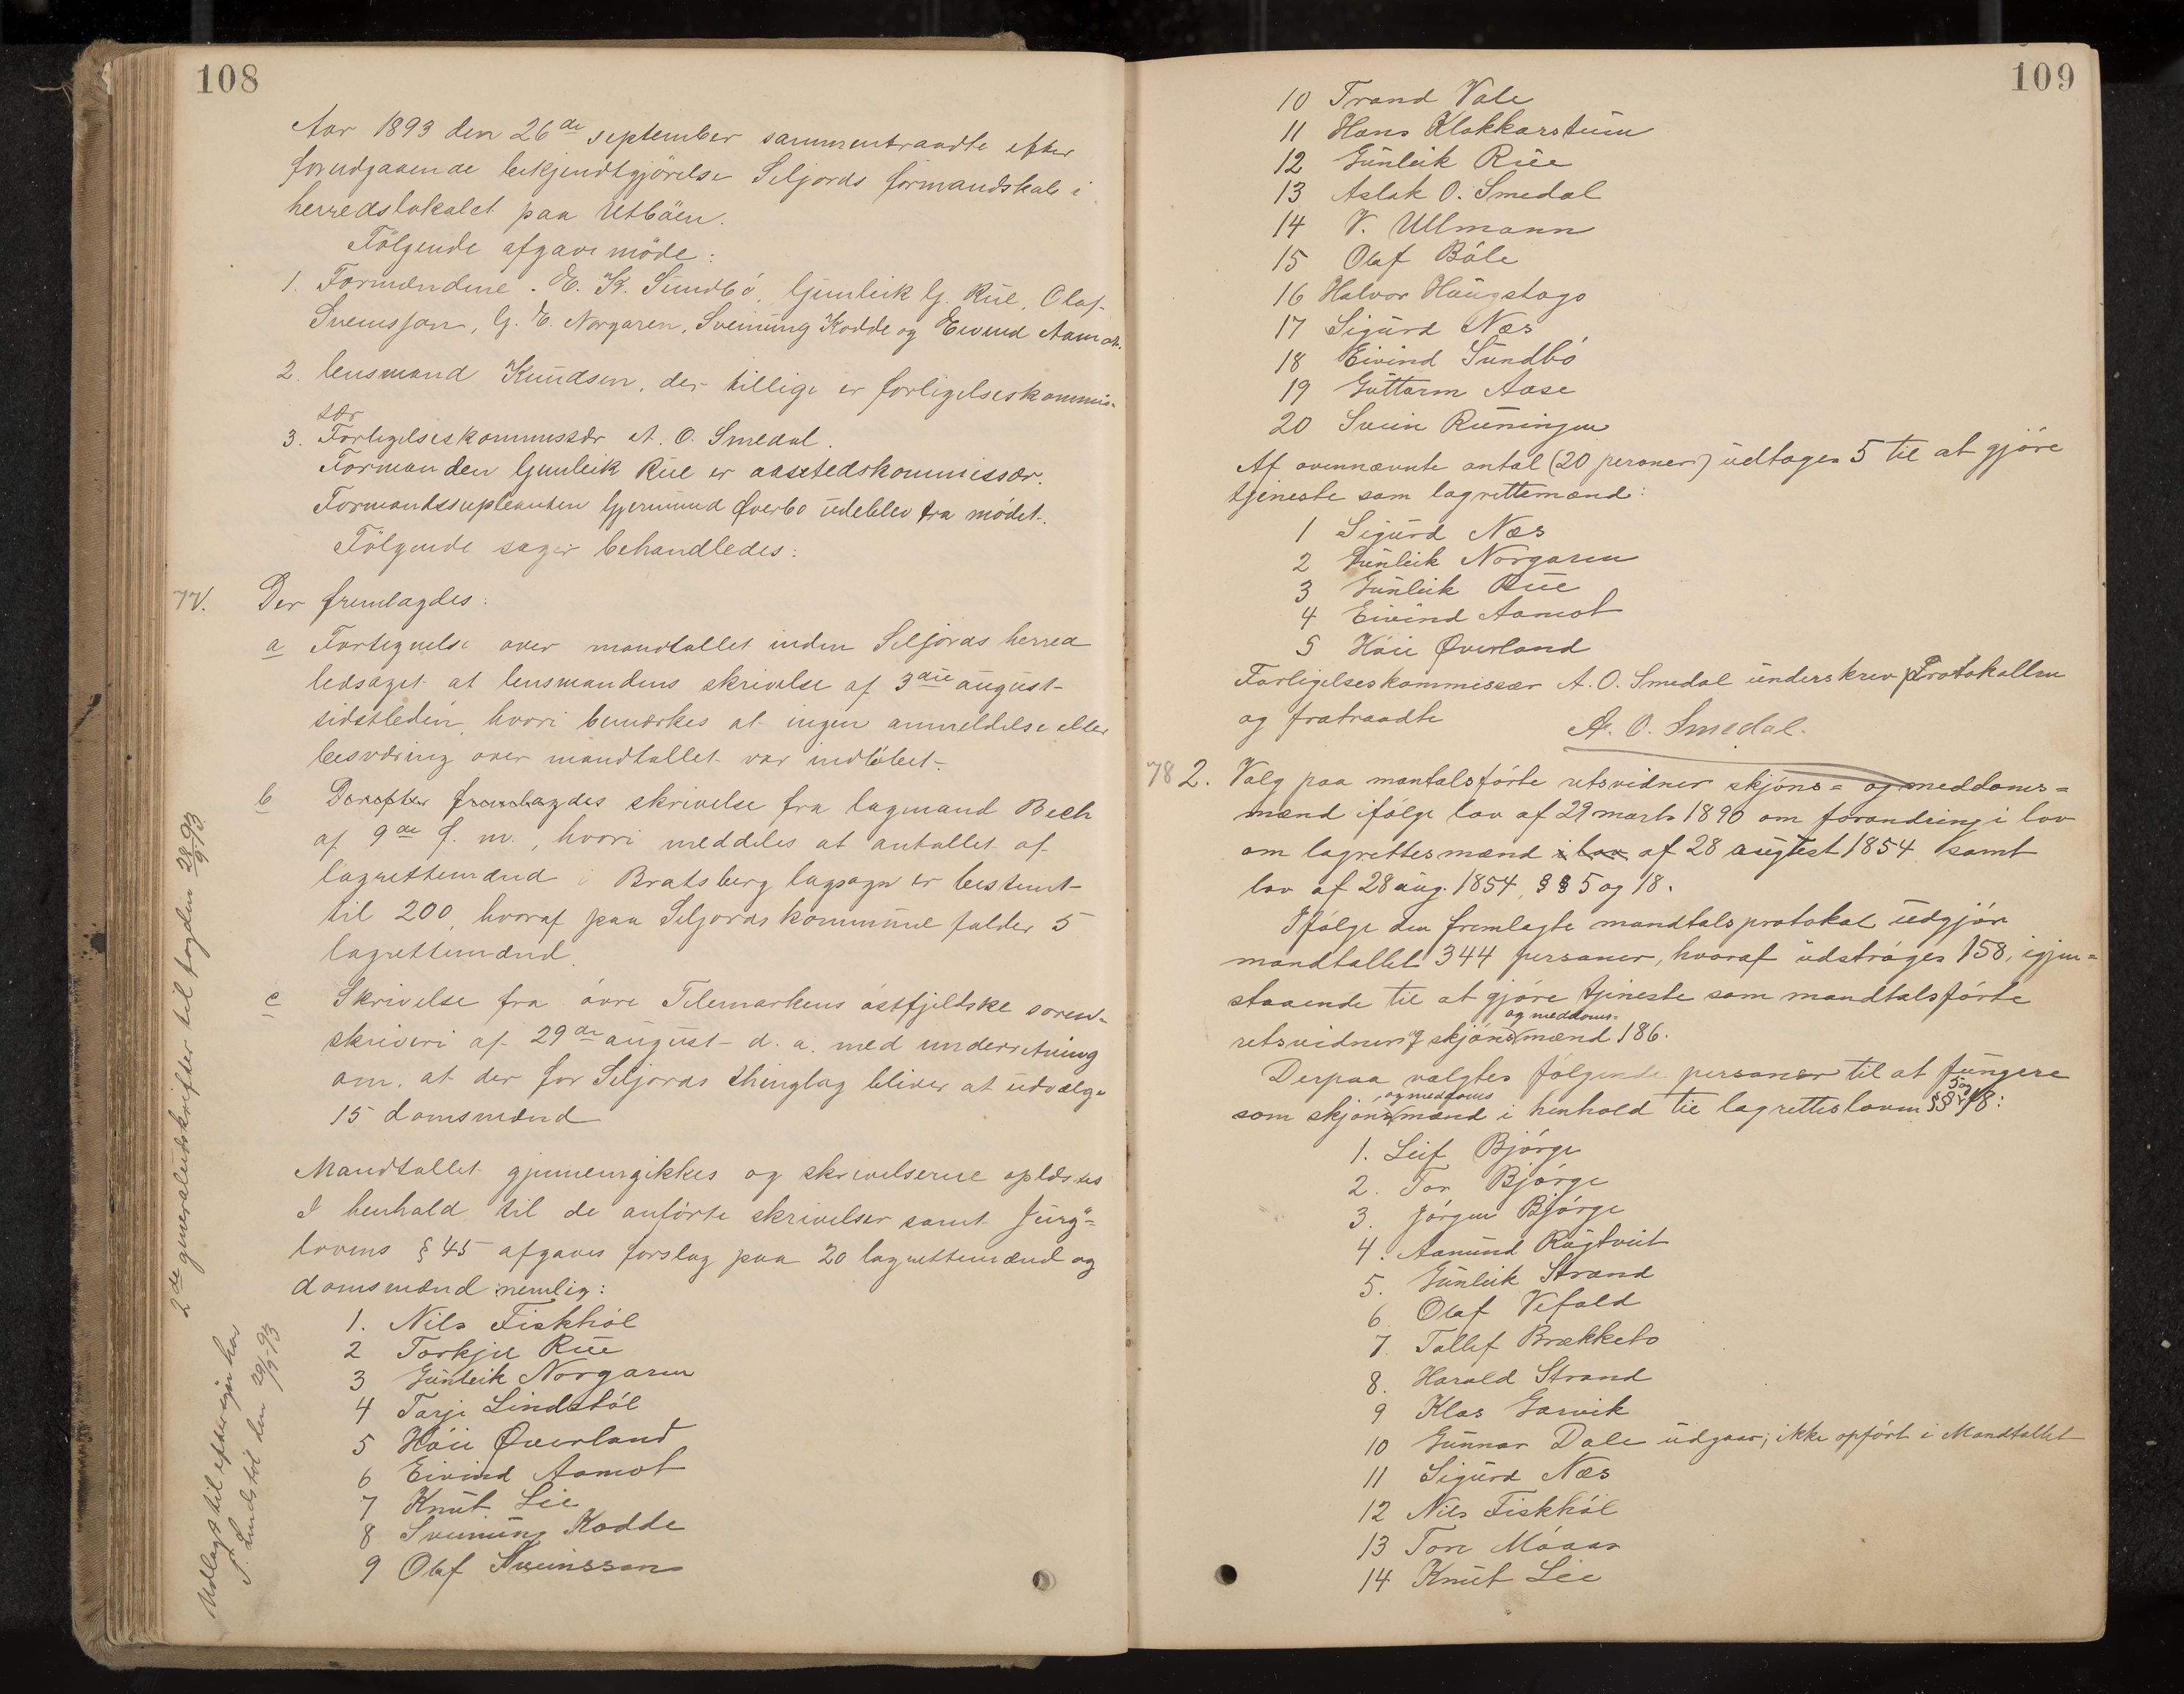 108
Aar 1893 den 26de september sammentraadte efter
forudgaaende bekjendtgjörelse Seljords formandskab i
herredslokalet paa Utböen.
Fölgende afgave möde:
1. Formændene. E. K. Sundbö, Gunleik G. Rue, Olaf
Sveinsson, G. E. Norgaren, Sveinung Kodde og Eivind Aamot.
2. lensmand Knudsen, der tillige er forligelseskommis-
sær
3. Forligelseskommissær A. O. Smedal.
Formanden Gunleik Rue er aastedskommissær.
Formandssupleanten Gjermund Överbö udeblev fra mödet.
Fölgende sager behandledes:
77. Der fremlagdes:
a Fortegnelse over mandtallet inden Seljords herred
ledsaget at lensmandens skrivelse af 3die august
sidstleden, hvori bemærkes at ingen anmeldelse eller
besværing over mandtallet var indlöbet.
b Derefter fremlagdes skrivelse fra lagmand Bech
af 9de f. m., hvori meddeles at antallet af
lagrettemænd i Bratsberg lagsogn er bestemt
til 200, hvoraf paa Seljords kommune falder 5
lagrettemænd.
c Skrivelse fra övre Telemarkens östfjeldske soren-
skriveri af 29de august d. a. med underretning
om, at der for Seljords thinglag bliver at udvælge
15 domsmænd
Mandtallet gjennemgikkes og skrivelserne oplæstes
I henhold til de anförte skrivelser samt Jury-
lovens § 45 afgaves forslag paa 20 lagrettemænd og
domsmænd nemlig:
1. Nils Fiskhöl
2 Torkjel Rue
3 Gunleik Norgaren
4 Tarje Lindstöl
5 Höie Øverland
6 Eivind Aamot
7 Knut Lie
8 Sveinung Kodde
9 Olaf Sveinsson
2de generaludskrifter til fogden 28/9 93
Udlagt til eftersyn hos
T. Lindstöl den 29/9-93
109
10 Trand Vale
11 Hans Klokkarstuun
12 Gunleik Rue
13 Aslak O. Smedal
14 V. Ullmann
15 Olaf Böle
16 Halvor Haugstogo
17 Sigurd Næs
18 Eivind Sundbö
19 Guttorm Aase
20 Svein Runingen
Af ovennævnte antal (20 personer) udtoges 5 til at gjöre
tjeneste som lagrettemænd:
1 Sigurd Næs
2 Gunleik Norgaren
3 Gunleik Rue
4 Eivind Aamot
5 Höie Øverland
Forligelseskommissær A. O. Smedal underskrev Protokollen
og fratraadte
A. O. Smedal.
78 2. Valg paa mantalsförte retsvidner skjöns- og meddoms-
mænd ifölge lov af 29 marts 1890 om forandring i lov
om lagrettesmænd i lov af 28 august 1854 samt
lov af 28 aug. 1854, § § 5 og 18.
Ifölge den fremlagte mandtalsprotokol udgjör
mandtallet 344 personer, hvoraf udströges 158, igjen-
staaende til at gjöre tjeneste som mandtalsförte
og meddoms-
retsvidner og skjönsmænd 186.
Derpaa valgtes fölgende personer til at fungere
og meddoms 5 og
som skjönsmænd i henhold til lagretteslovens §§ 18:
1. Leif Bjórge
2. Tor Bjórge
3. Jörgen Bjórge
4. Aanund Rugtveit
5. Gunleik Strand
6. Olaf Vefald
7. Tallef Brækkebo
8. Harald Strand
9 Klas Garvik
10 Gunnar Dale udgaar; ikke opfört i Mandtallet
11 Sigurd Næs
12 Nils Fiskhöl
13 Tore Móaar
14 Knut Lie